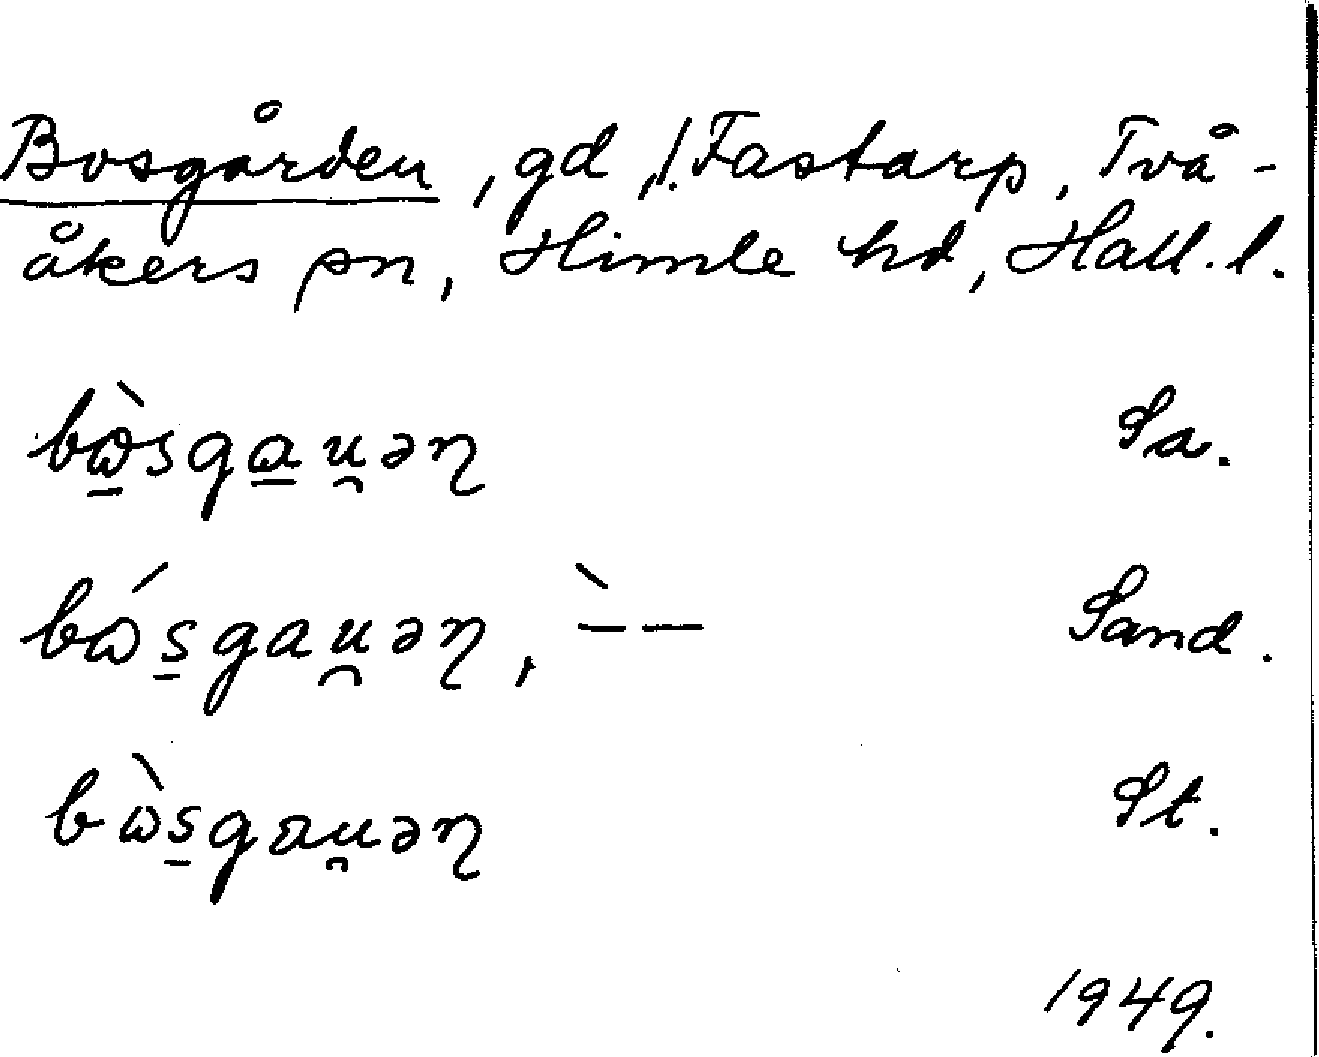 Bosgården, gd, /.Fastarp, Två-
åkers sn, Himle hd, Hall. l.
bὼ̱sga̱u̯əɳ Sa.
bώs̱gau̯əɳ, ̀– – Sand.
bὼs̱gɑu̯əɳ St.
1949.